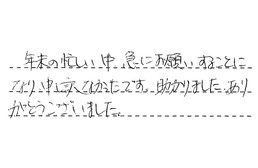 年末の忙しい中、急にお願いすることに
なり申し訳なかったです。助かりました。あり
がとうございました。